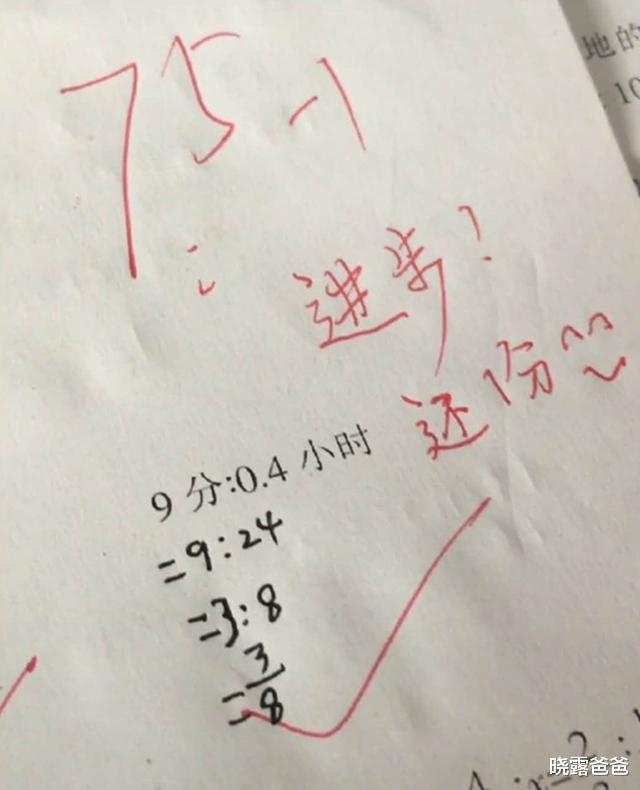 75-1
地的
: 10
进步!
还份
9分:0.4小时
=9:24
=3:8
=3/8
晓露爸爸